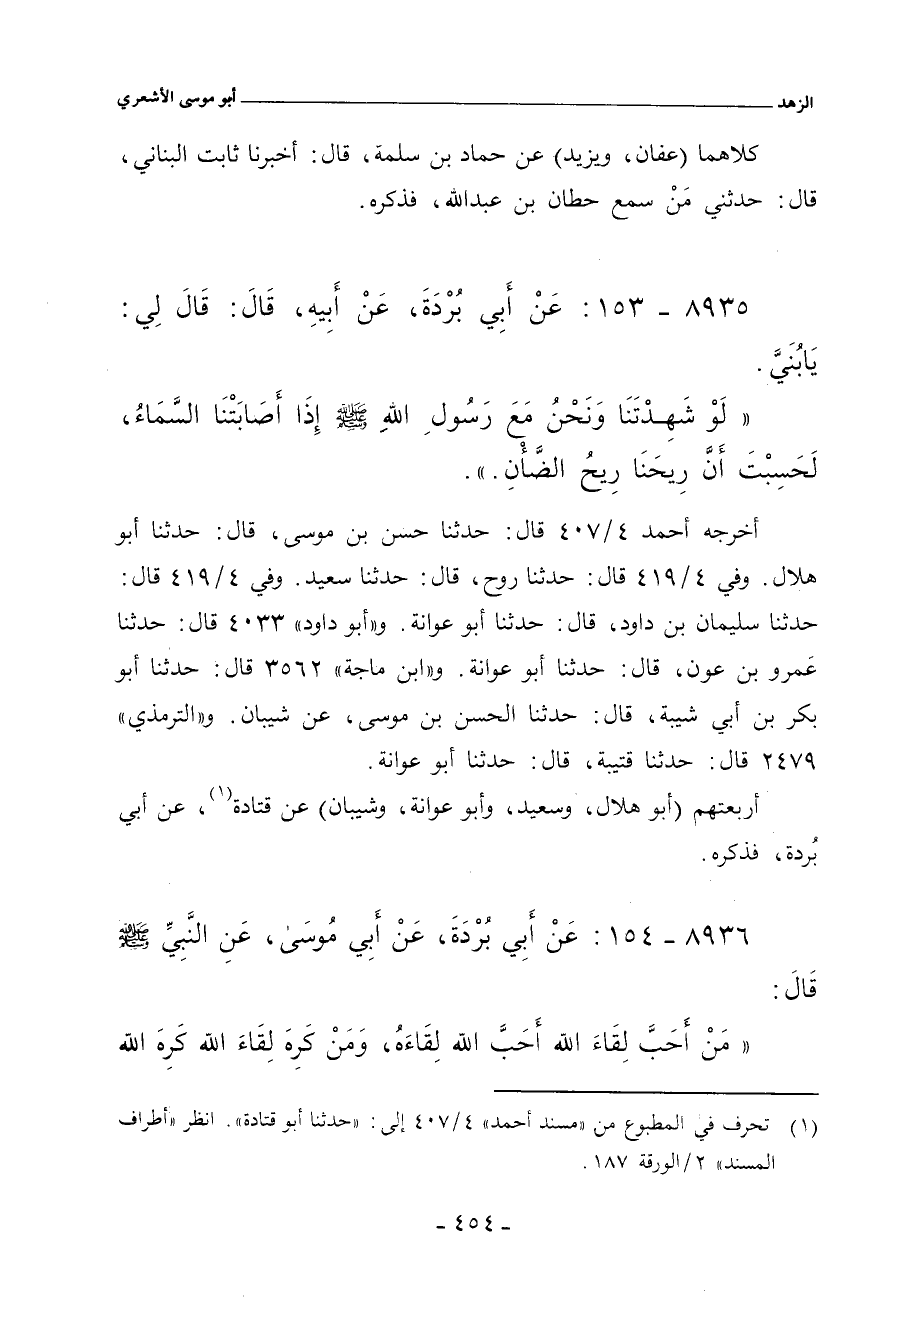 الزهد ـــــــــ أبو موسى الأشعري
كلاهما (عفان، ويزيد) عن حماد بن سلمة، قال: أخبرنا ثابت البناني،
قال: حدثني مَنْ سمع حطان بن عبدالله، فذكره.
٨٩٣٥ ـ ١٥٣: عَنْ أَبِي بُرْدَةَ، عَنْ أَبِيهِ، قَالَ: قَالَ لِي:
يَابُنَيَّ.
« لَوْ شَهِدْتَنَا وَنَحْنُ مَعَ رَسُولِ اللهِ ﷺ إِذَا أَصَابَتْنَا السَّمَاءُ،
لَحَسِبْتَ أَنَّ رِيحَنَا رِيحُ الضَّأْنِ.».
أخرجه أحمد ٤٠٧/٤ قال: حدثنا حسن بن موسى، قال: حدثنا أبو
هلال. وفي ٤١٩/٤ قال: حدثنا روح، قال: حدثنا سعيد. وفي ٤١٩/٤ قال:
حدثنا سليمان بن داود، قال: حدثنا أبو عوانة. و«أبو داود» ٤٠٣٣ قال: حدثنا
عَمرو بن عون، قال: حدثنا أبو عوانة. و«ابن ماجة» ٣٥٦٢ قال: حدثنا أبو
بكر بن أبي شيبة، قال: حدثنا الحسن بن موسى، عن شيبان. و«الترمذي»
٢٤٧٩ قال: حدثنا قتيبة، قال: حدثنا أبو عوانة.
أربعتهم (أبو هلال، وسعيد، وأبو عوانة، وشيبان) عن قتادة(١)، عن أبي
بُردة، فذكره.
٨٩٣٦ ـ ١٥٤: عَنْ أَبِي بُرْدَةَ، عَنْ أَبِي مُوسَىٰ، عَنِ النَّبِيِّ ﷺ
قَالَ:
« مَنْ أَحَبَّ لِقَاءَ الله أَحَبَّ الله لِقَاءَهُ، وَمَنْ كَرِهَ لِقَاءَ الله كَرِهَ الله
(١) تحرف في المطبوع من «مسند أحمد» ٤٠٧/٤ إلى: «حدثنا أبو قتادة». انظر «أطراف
المسند» ٢/الورقة ١٨٧.
ـ ٤٥٤ ـ